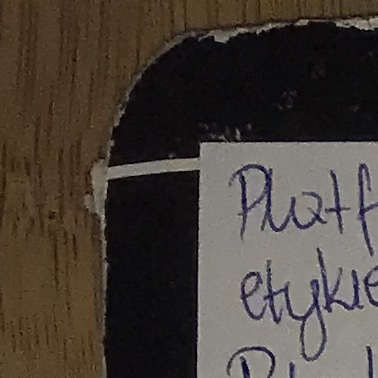 Platf
etykie